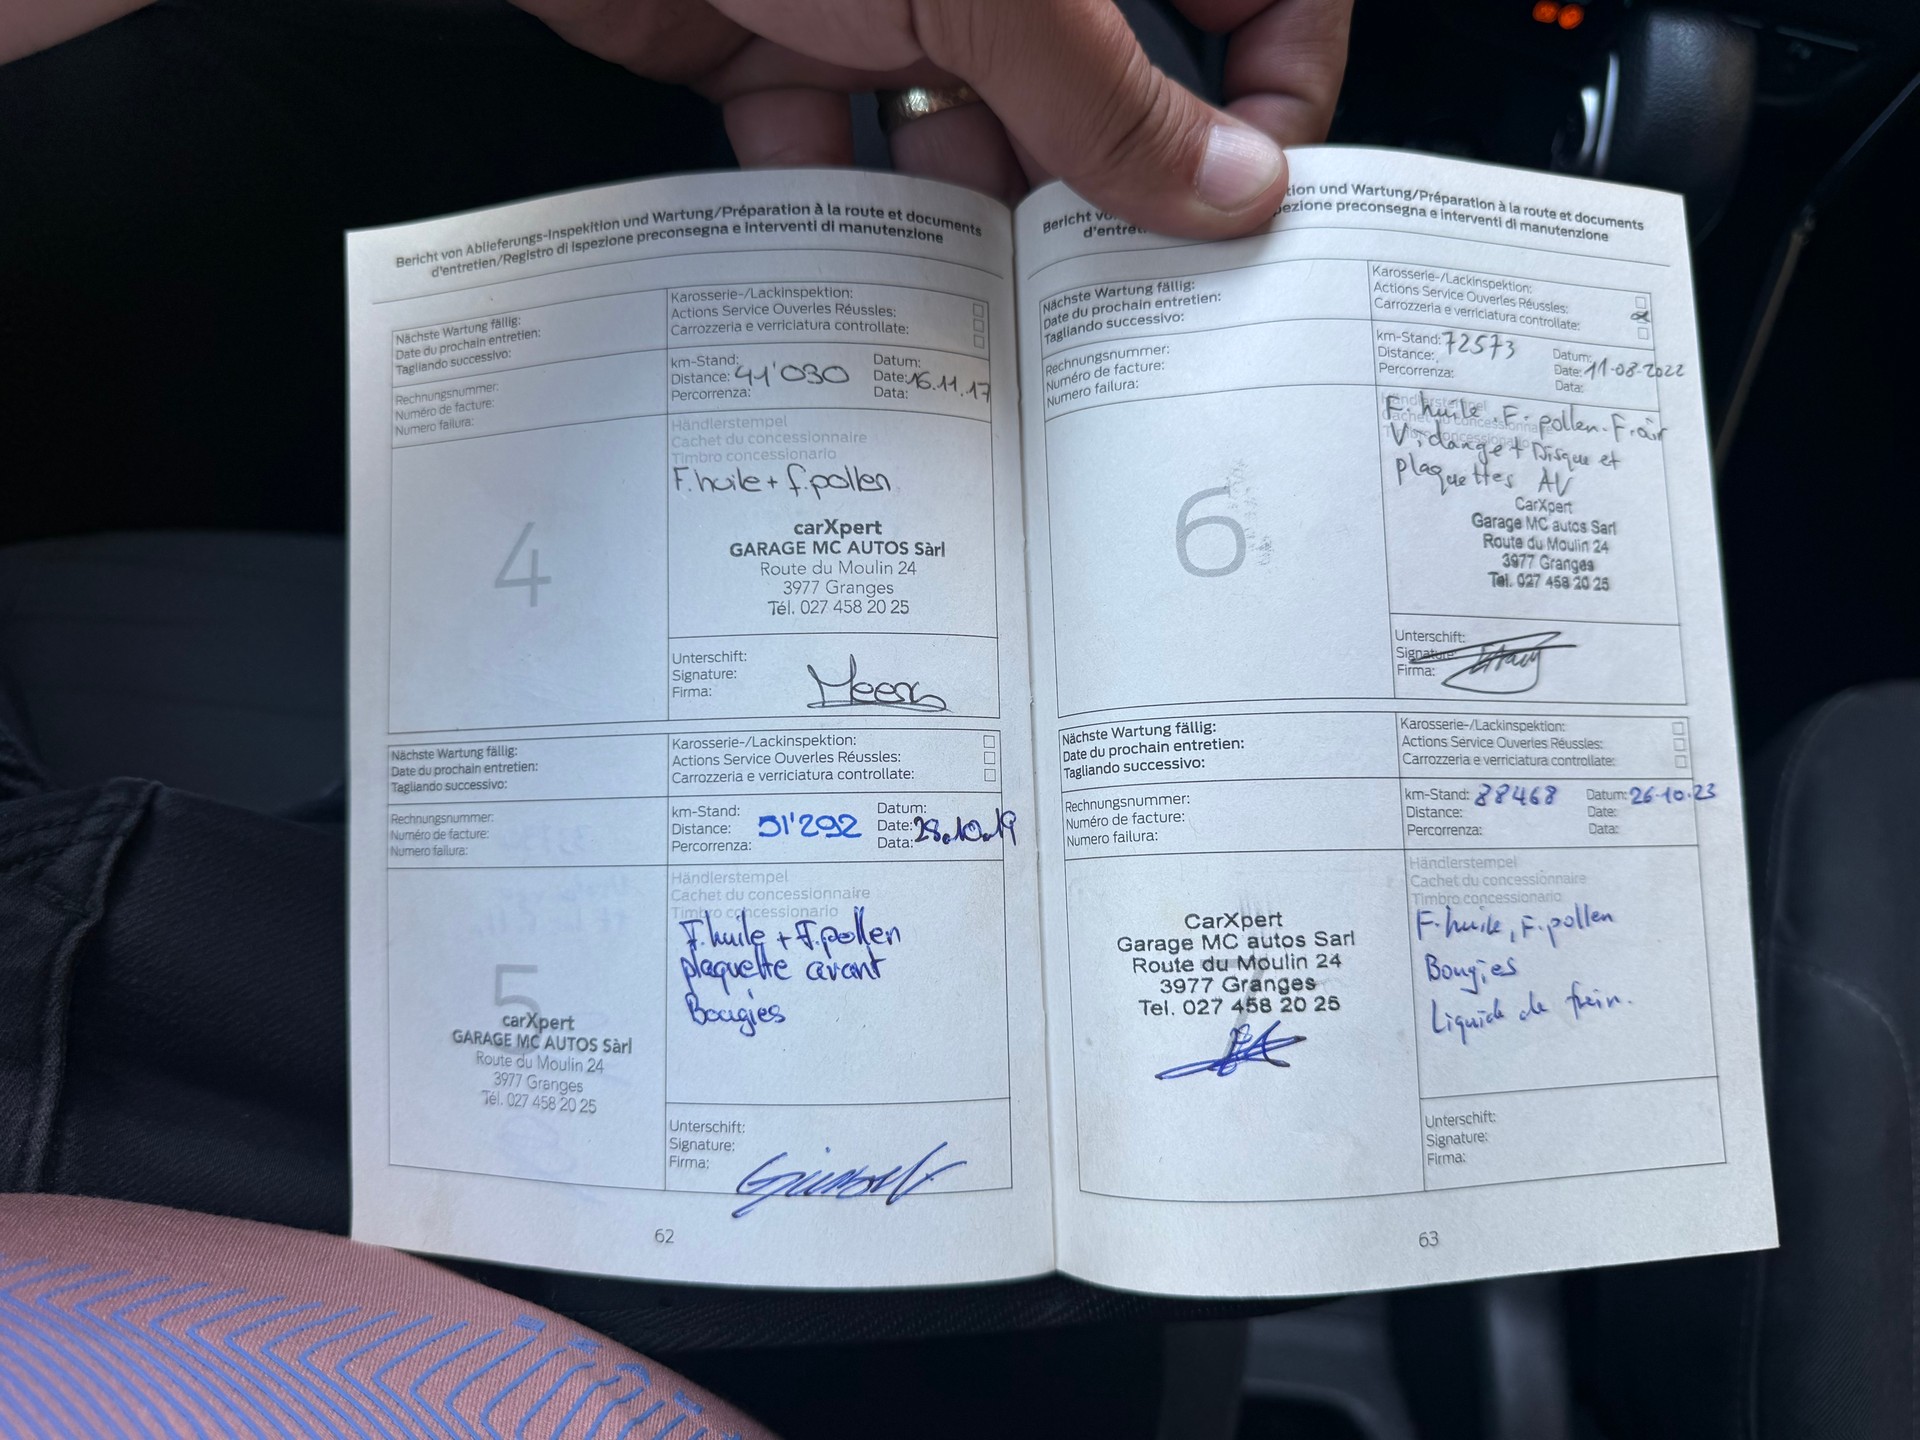 Bericht von Ablieferungs-Inspekition und Wartung/Préparation à la route et documents
d'entretien/Registro di Ispezione preconsegna e Interventi di manutenzione
Nächste Wartung fällig:
Date du prochain entretien:
Tagliando successivo:
Karosserie-/Lackinspektion:
Actions Service Ouverles Réussles:
Carrozzeria e verriciatura controllate:
Rechnungsnummer:
Numéro de facture:
Numero failura:
km-Stand:
Distance: 41'030
Percorrenza:
Datum:
Date: 16.11.17
Data:
4
Händlerstempel
Cachet du concessionnaire
Timbro concessionario
F.huile + f.pollen
carXpert
GARAGE MC AUTOS Sàrl
Route du Moulin 24
3977 Granges
Tél. 027 458 20 25
Unterschift:
Signature:
Firma:
Nächste Wartung fällig:
Date du prochain entretien:
Tagliando successivo:
Karosserie-/Lackinspektion:
Actions Service Ouverles Réussles:
Carrozzeria e verriciatura controllate:
Rechnungsnummer:
Numéro de facture:
Numero failura:
km-Stand:
Distance: 51'292
Percorrenza:
Datum:
Date: 28.10.19
Data:
5
carXpert
GARAGE MC AUTOS Sàrl
Route du Moulin 24
3977 Granges
Tél. 027 458 20 25
Händlerstempel
Cachet du concessionnaire
Timbro concessionario
F.huile + F.pollen
plaquette avant
Bougies
Unterschift:
Signature:
Firma:
62
Bericht tion und Wartung/Préparation à la route et documents
d'entre pezione preconsegna e interventi di manutenzione
Nächste Wartung fällig:
Date du prochain entretien:
Tagliando successivo:
Karosserie-/Lackinspektion:
Actions Service Ouverles Réussles:
Carrozzeria e verriciatura controllate:
Rechnungsnummer:
Numéro de facture:
Numero failura:
km-Stand: 72573
Distance:
Percorrenza:
Datum:
Date: 11-08-2022
Data:
6
Händlerstempel
Cachet du concessionnaire
Timbro concessionario
F. huile. F. pollen. F. air
Vidange + Disque et
plaquettes AV
CarXpert
Garage MC autos Sarl
Route du Moulin 24
3977 Granges
Tel. 027 458 20 25
Unterschift:
Signature:
Firma:
Nächste Wartung fällig:
Date du prochain entretien:
Tagliando successivo:
Karosserie-/Lackinspektion:
Actions Service Ouverles Réussles:
Carrozzeria e verriciatura controllate:
Rechnungsnummer:
Numéro de facture:
Numero failura:
km-Stand: 88468
Distance:
Percorrenza:
Datum: 26.10.23
Date:
Data:
7
CarXpert
Garage MC autos Sarl
Route du Moulin 24
3977 Granges
Tel. 027 458 20 25
Händlerstempel
Cachet du concessionnaire
Timbro concessionario
F. huile, F. pollen
Bougies
Liquide de frein.
Unterschift:
Signature:
Firma:
63